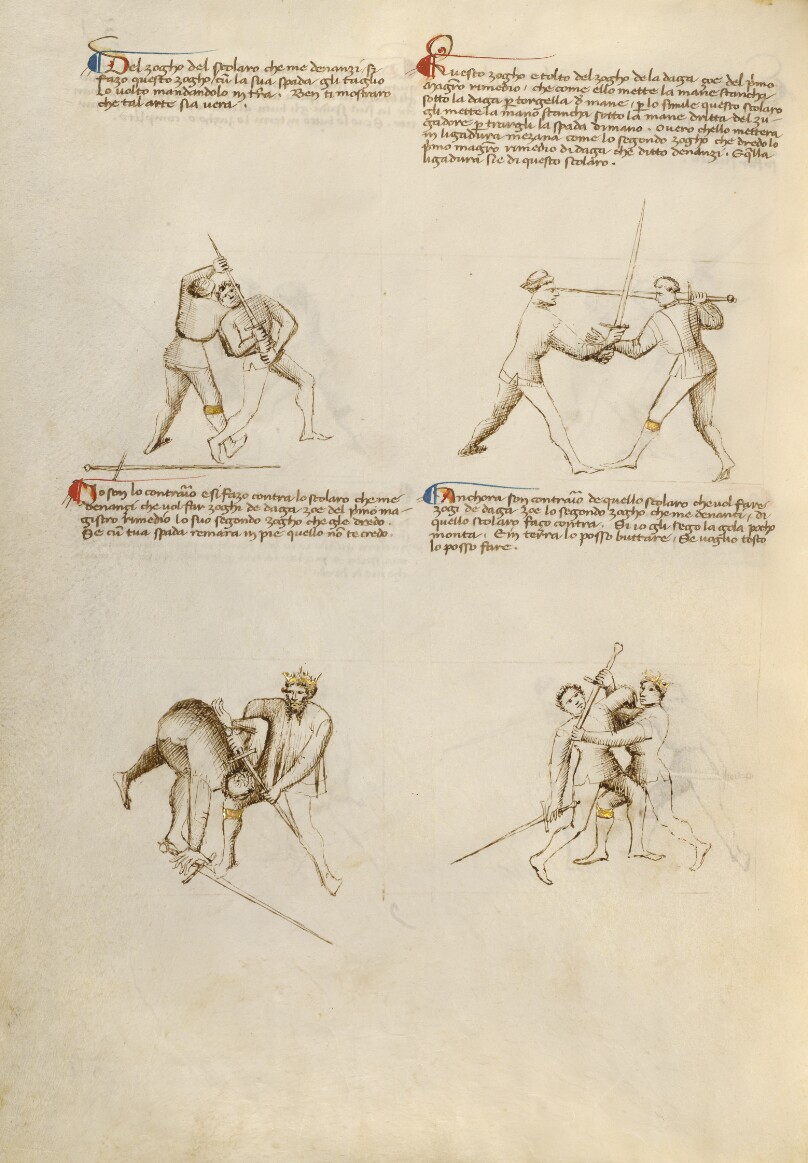 Del zogho del scolaro che me denanzi si
fazo questo zogho / cū la sua spada gli taglio
lo volto mandandolo in tr̄a. Ben ti mostraro
che tal arte sia vera.
Questo zogho e tolto del zogho de la daga çoe del p̄mo
magr̄o rimedio / che come ello mette la mane stancha
sotto la daga p torgella d mane / p lo simile questo scolaro
gli mette la mano stancha sotto la mane dritta del zu-
gadore p trargli la spada di mano. Overo chello mettera
in ligadura mezana come lo segondo zogho che dredo lo
p̄mo magr̄o rimedio di daga che ditto denanzi. E q̄lla
ligadura sie di questo scolaro.
Io son lo contrario e si fazo contra lo scolaro che me
denanci che vol far zoghi de daga zoe del p̄mo ma-
gistro rimedio lo suo segondo zogho che gle dredo.
Se cū tua spada remara in pie quello nō te credo.
Anchora son contrario de quello scolaro che vol fare
zogi de daga zoe lo segondo zogho che me denanci / di
quello scolaro faço contra. Si io gli sego la gola pocho
monta. E in terra lo posso buttare / Se voglio tosto
lo posso fare.